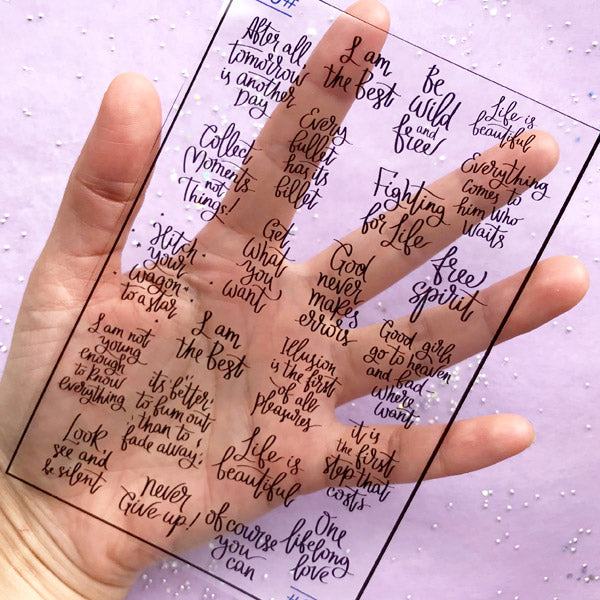 After all,
tomorrow
is another
Day
I am
the Best
Be
Wild
and
free
Life is
beautiful
Collect
Moments
not
Things!
Every
bullet
has its
billet
Fighting
for Life
Everything
comes to
him who
waits
Hitch
your
wagon
to a star
Get
What
you
want
God
never
makes
errors
free
spirit
I am not
young
enough
to know
everything
I am
the Best
Illusion
is the first
of all
pleasures
Good girls
go to heaven
and bad -
where
want
it's better
to burn out
than to
fade away
Look,
see and
be silent
Life is
beautiful
it is
the first
step that
costs
never
Give up!
of course
you
can
One
lifelong
love